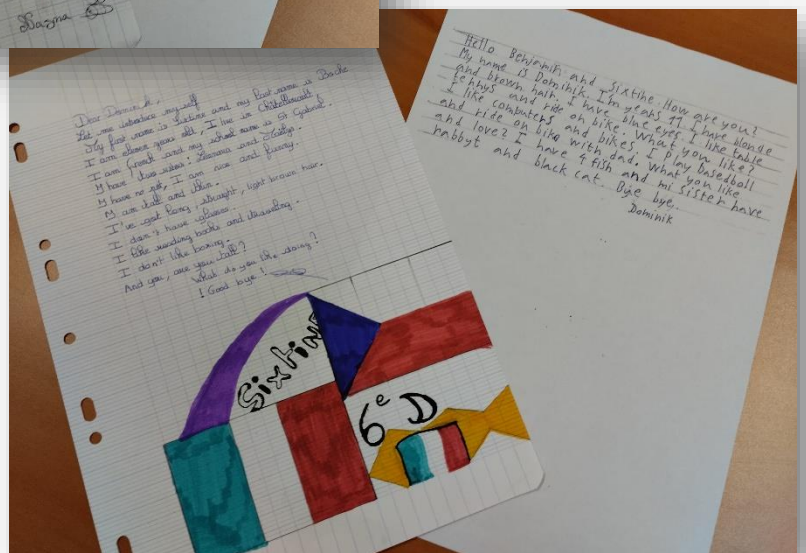 Nazma
Dear Dominik,
Let me introduce myself
My first name is Sixtine and my last name is Boche
I am eleven years old, I live in
I am french and my school name is St Gabriel.
I have two sisters: and
I have no pet, I am nice and funny.
I am tall and thin.
I've got long, straight, light brown hair.
I don't have glasses.
I like reading books and drawing.
I don't like boxing.
And you, are you tall?
What do you like doing?
! Good bye !
Sixtine
6e D
Hello Benjamin and Sixtine. How are you?
My name is Dominik. I'm years 11 I have blonde
and brown hair. I have blue eyes. I like table
tennys and ride on bike. What you like?
I like computers and bikes. I play basedball
and ride on bike with dad. What you like
and love? I have 4 fish and mi sister have
habbyt and black cat. Bye bye.
Dominik